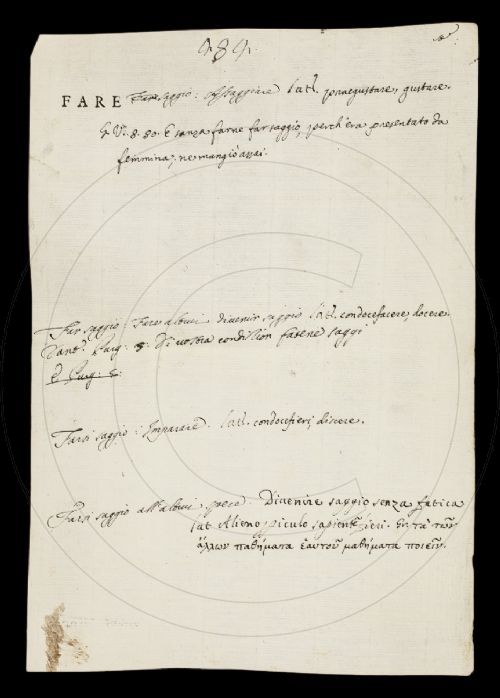 484.
FARE Far saggio: Assaggiare Lat. praegustare, gustare.
G. V. 8. 80. E sanza farne far saggio, perch'era presentato da
femmina, ne mangiò assai.
Far saggio: Fare altrui divenir saggio Lat. condocefacere, docere.
Dant. Purg. 5. Di vostra condizion fatene saggi
E Purg. 5.
Farsi saggio: Imparare. Lat. condocefieri, discere.
Farsi saggio all'altrui spese. Divenire saggio senza fatica
Lat. Alieno periculo sapient. fieri. Εκ τὰ τῶν
ἄλλων παθήματα ἑαυτοῦ μαθήματα ποιεῖν.